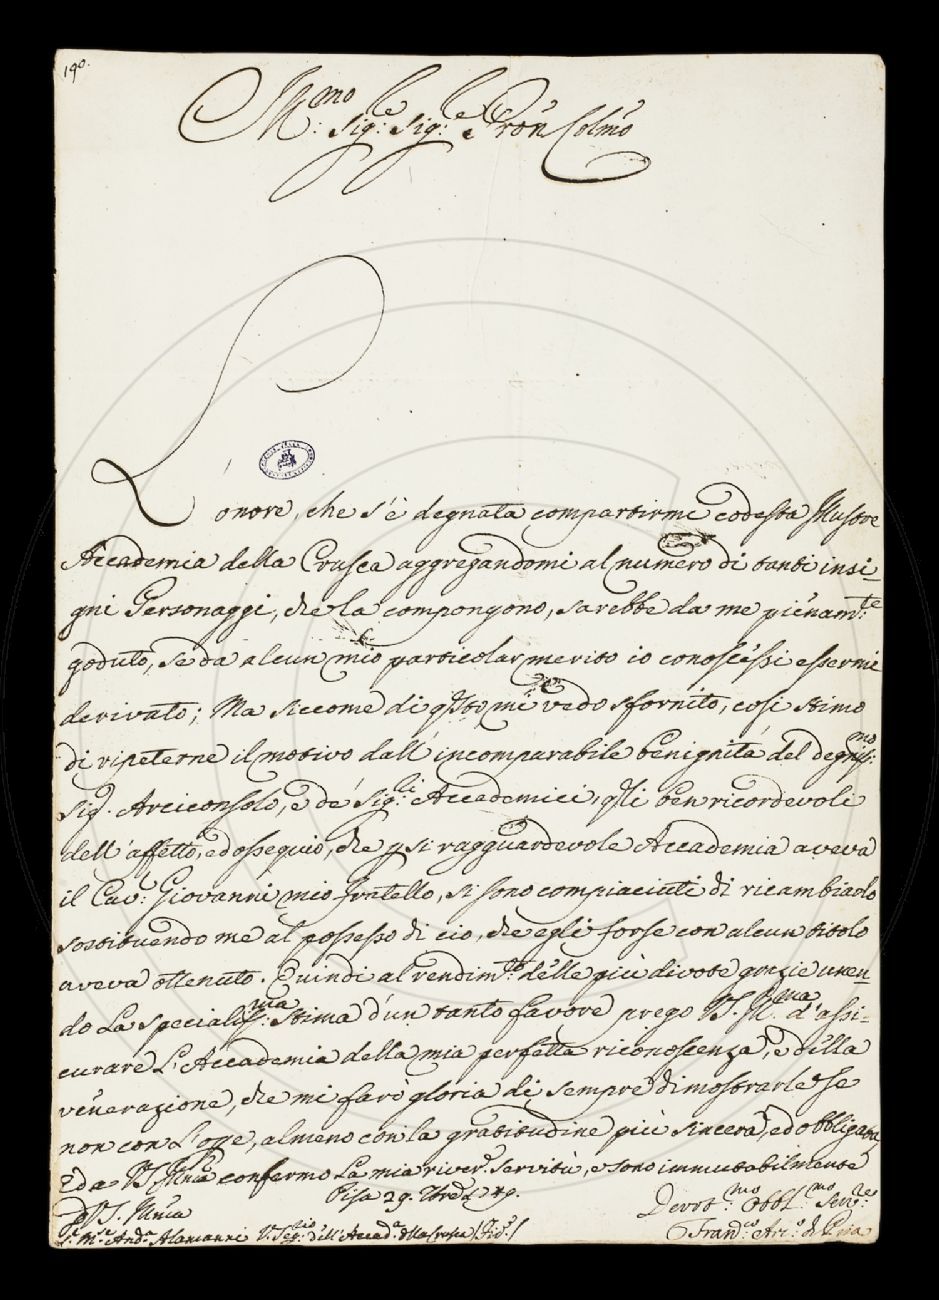 190.
Ill:mo Sig:re Sig:re e Prōn Colmō
L'onore, che s'è degnata compartirmi codesta Illustre
Accademia della Crusca aggregandomi al numero di tanti insi-
gni Personaggi, che la compongono, sarebbe da me pienam:te
goduto, se da alcun mio particolar merito io conoscéssi essermi
derivato; Ma siccome di qsto mi vedo sfornito, così stimo
di ripeterne il motivo dall'incomparabile benignità del degniss:mo
Sig.r Arciconsolo, e de' Sig:ri Accademici, qli ben ricordevoli
dell'affetto, ed ossequio, che p si ragguardevole Accademia aveva
il Cav:r Giovanni mio fratello, si sono compiaciuti di ricambiarlo
sostituendo me al possesso di ciò, che egli forse con alcun titolo
aveva ottenuto. Quindi al rendim:to delle più divote grazie unen-
do la specialiss:ma stima d'un tanto favore prego V.S. Ill:ma d'assi-
curare l'Accademia della mia perfetta riconoscenza, e della
venerazione, che mi farò gloria di sempre dimostrarle se
non con l'opre, almeno con la gratitudine più sincera, ed obbligata,
e da V.S. Illma confermo la mia river.te servitù, e sono immutabilmente
Di V.S. Illma Pisa 29.
Devot:mo Obbl:mo Serv:re
S.r M.se And.a Alamanni V. Seg:rio dell'Accad.a della Crusca (Fir.e)
Fran:co Arc:o di Pisa